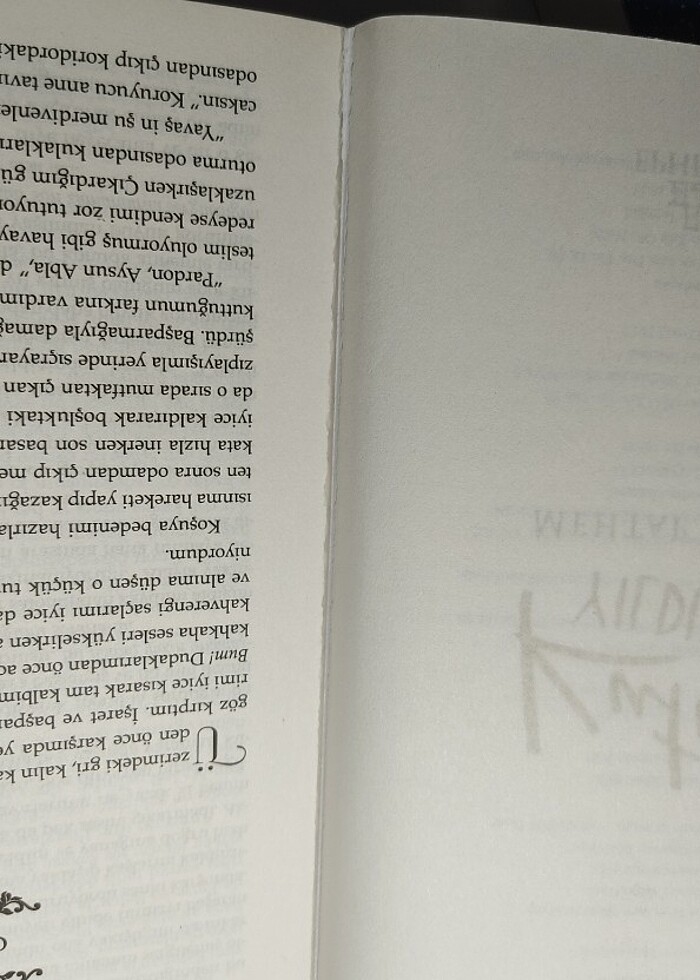 Üzerimdeki gri, kalın ka
den önce karşımda ye
göz kırptım. İşaret ve başpar
rimi iyice kısarak tam kalbim
Bum! Dudaklarımdan önce aç
kahkaha sesleri yükselirken a
kahverengi saçlarımı iyice da
ve alnıma düşen o küçük tu
niyordum.
Koşuya bedenimi hazırla
ısınma hareketi yapıp kazağı
ten sonra odamdan çıkıp me
kata hızla inerken son basa
iyice kaldırarak boşluktaki
da o sırada mutfaktan çıkan
zıplayışımla yerinde sıçrayar
şürdü. Başparmağıyla damağ
kuttuğumun farkına vardım
"Pardon, Aysun Abla," d
teslim oluyormuş gibi havay
redeyse kendimi zor tutuyor
uzaklaşırken Çıkardığım gü
oturma odasından kulakları
"Yavaş in şu merdivenle
caksın." Koruyucu anne tavı
odasından çıkıp koridordaki